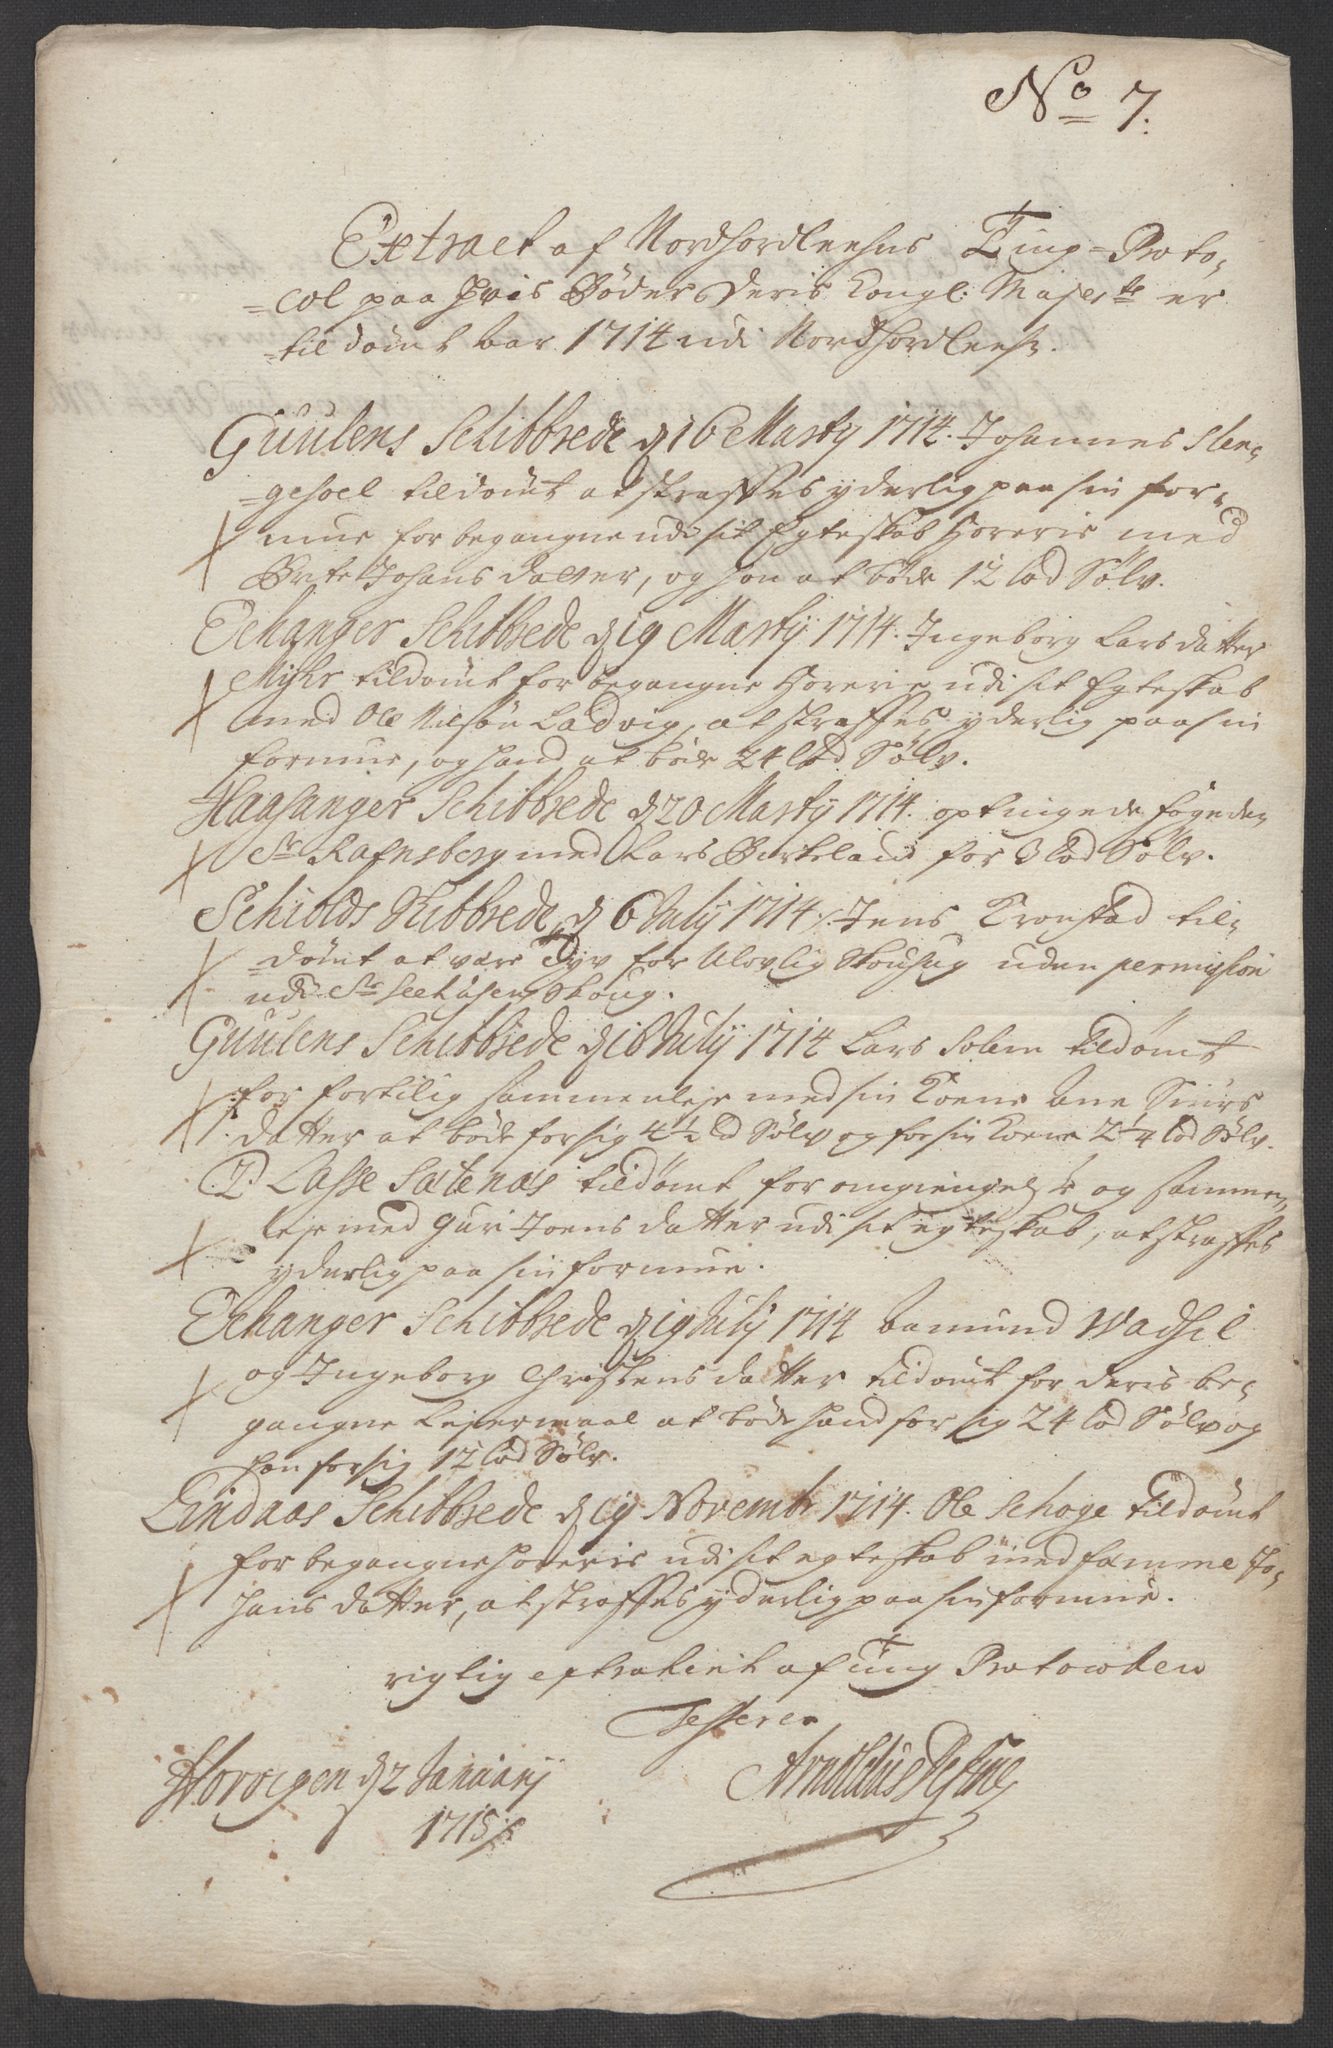 No 7:
Extract af Nordhordlehns Ting=Proto-
=col paa hvis Bøder Deris Kongl: Majestt er
=til dømt Aar 1714 udi Nordhordlehn.
Guulens Schibbrede d 16 Marty 1714. Johannes Slen-
=gesoel tildømt at straffes yderlig paa sin for-
mue for begangne udi sit Egteskab Horerie med
Brite Johans datter, og hon at bøde 12 lod Sølv.
Echanger Schibbrede d 19 Marty 1714. Ingeborg Lars datter
Myhr tildømt for begangne Horerie udi sit Egteskab
med Ole Nilsøn Ladvig, at straffes yderlig paa sin
formue, og hand at bøde 24 lod Sølv.
Haasanger Schibbrede d 20 Marty 1714. optingede fogeden
Sr Rafnsberg med Lars Birkeland for 3 lod Sølv.
Schiolds Skibbrede d 6 July 1714 /. Jens Kronstad til-
=dømt at være Tyv for Ulovlig Skouhug uden permission
udi Sr Seehusens Skoug.
Guulens Schibbrede d 16 July 1714 Lars Solem tildømt
for fortilig sammenleje med sin Kone Ane Siurs
datter at bøde for sig 4½ lod Sølv og for sin Kone 2¼ lod Sølv.
2. Lasse Sætenæs tildømt for omgiengelse og sammen-
leje med Guri Joens datter udi sit egteskab, at straffes
yderlig paa sin formue.
Echanger Schibbrede d 19 July 1714 Aamund Wadsel
og Ingeborg Christens datter tildømt for deris be-
gangne Lejermaal at bøde hand for sig 24 lod Sølv og
hon for sig 12 lod Sølv.
Lindaas Schibbrede d 19 Novembr 1714. Ole Schoge tildømt
for begangne horerie udi sit egteskab med samme Jo-
hans datter, at straffes yderlig paa sin formue.
rigtig extraherit af ting Protocollen
Testerer
d 2 January
1715/